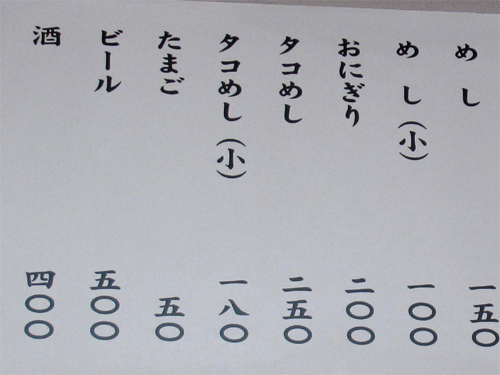 めし 一五〇
めし(小) 一〇〇
おにぎり 二〇〇
タコめし 二五〇
タコめし(小) 一八〇
たまご 五〇
ビール 五〇〇
酒 四〇〇